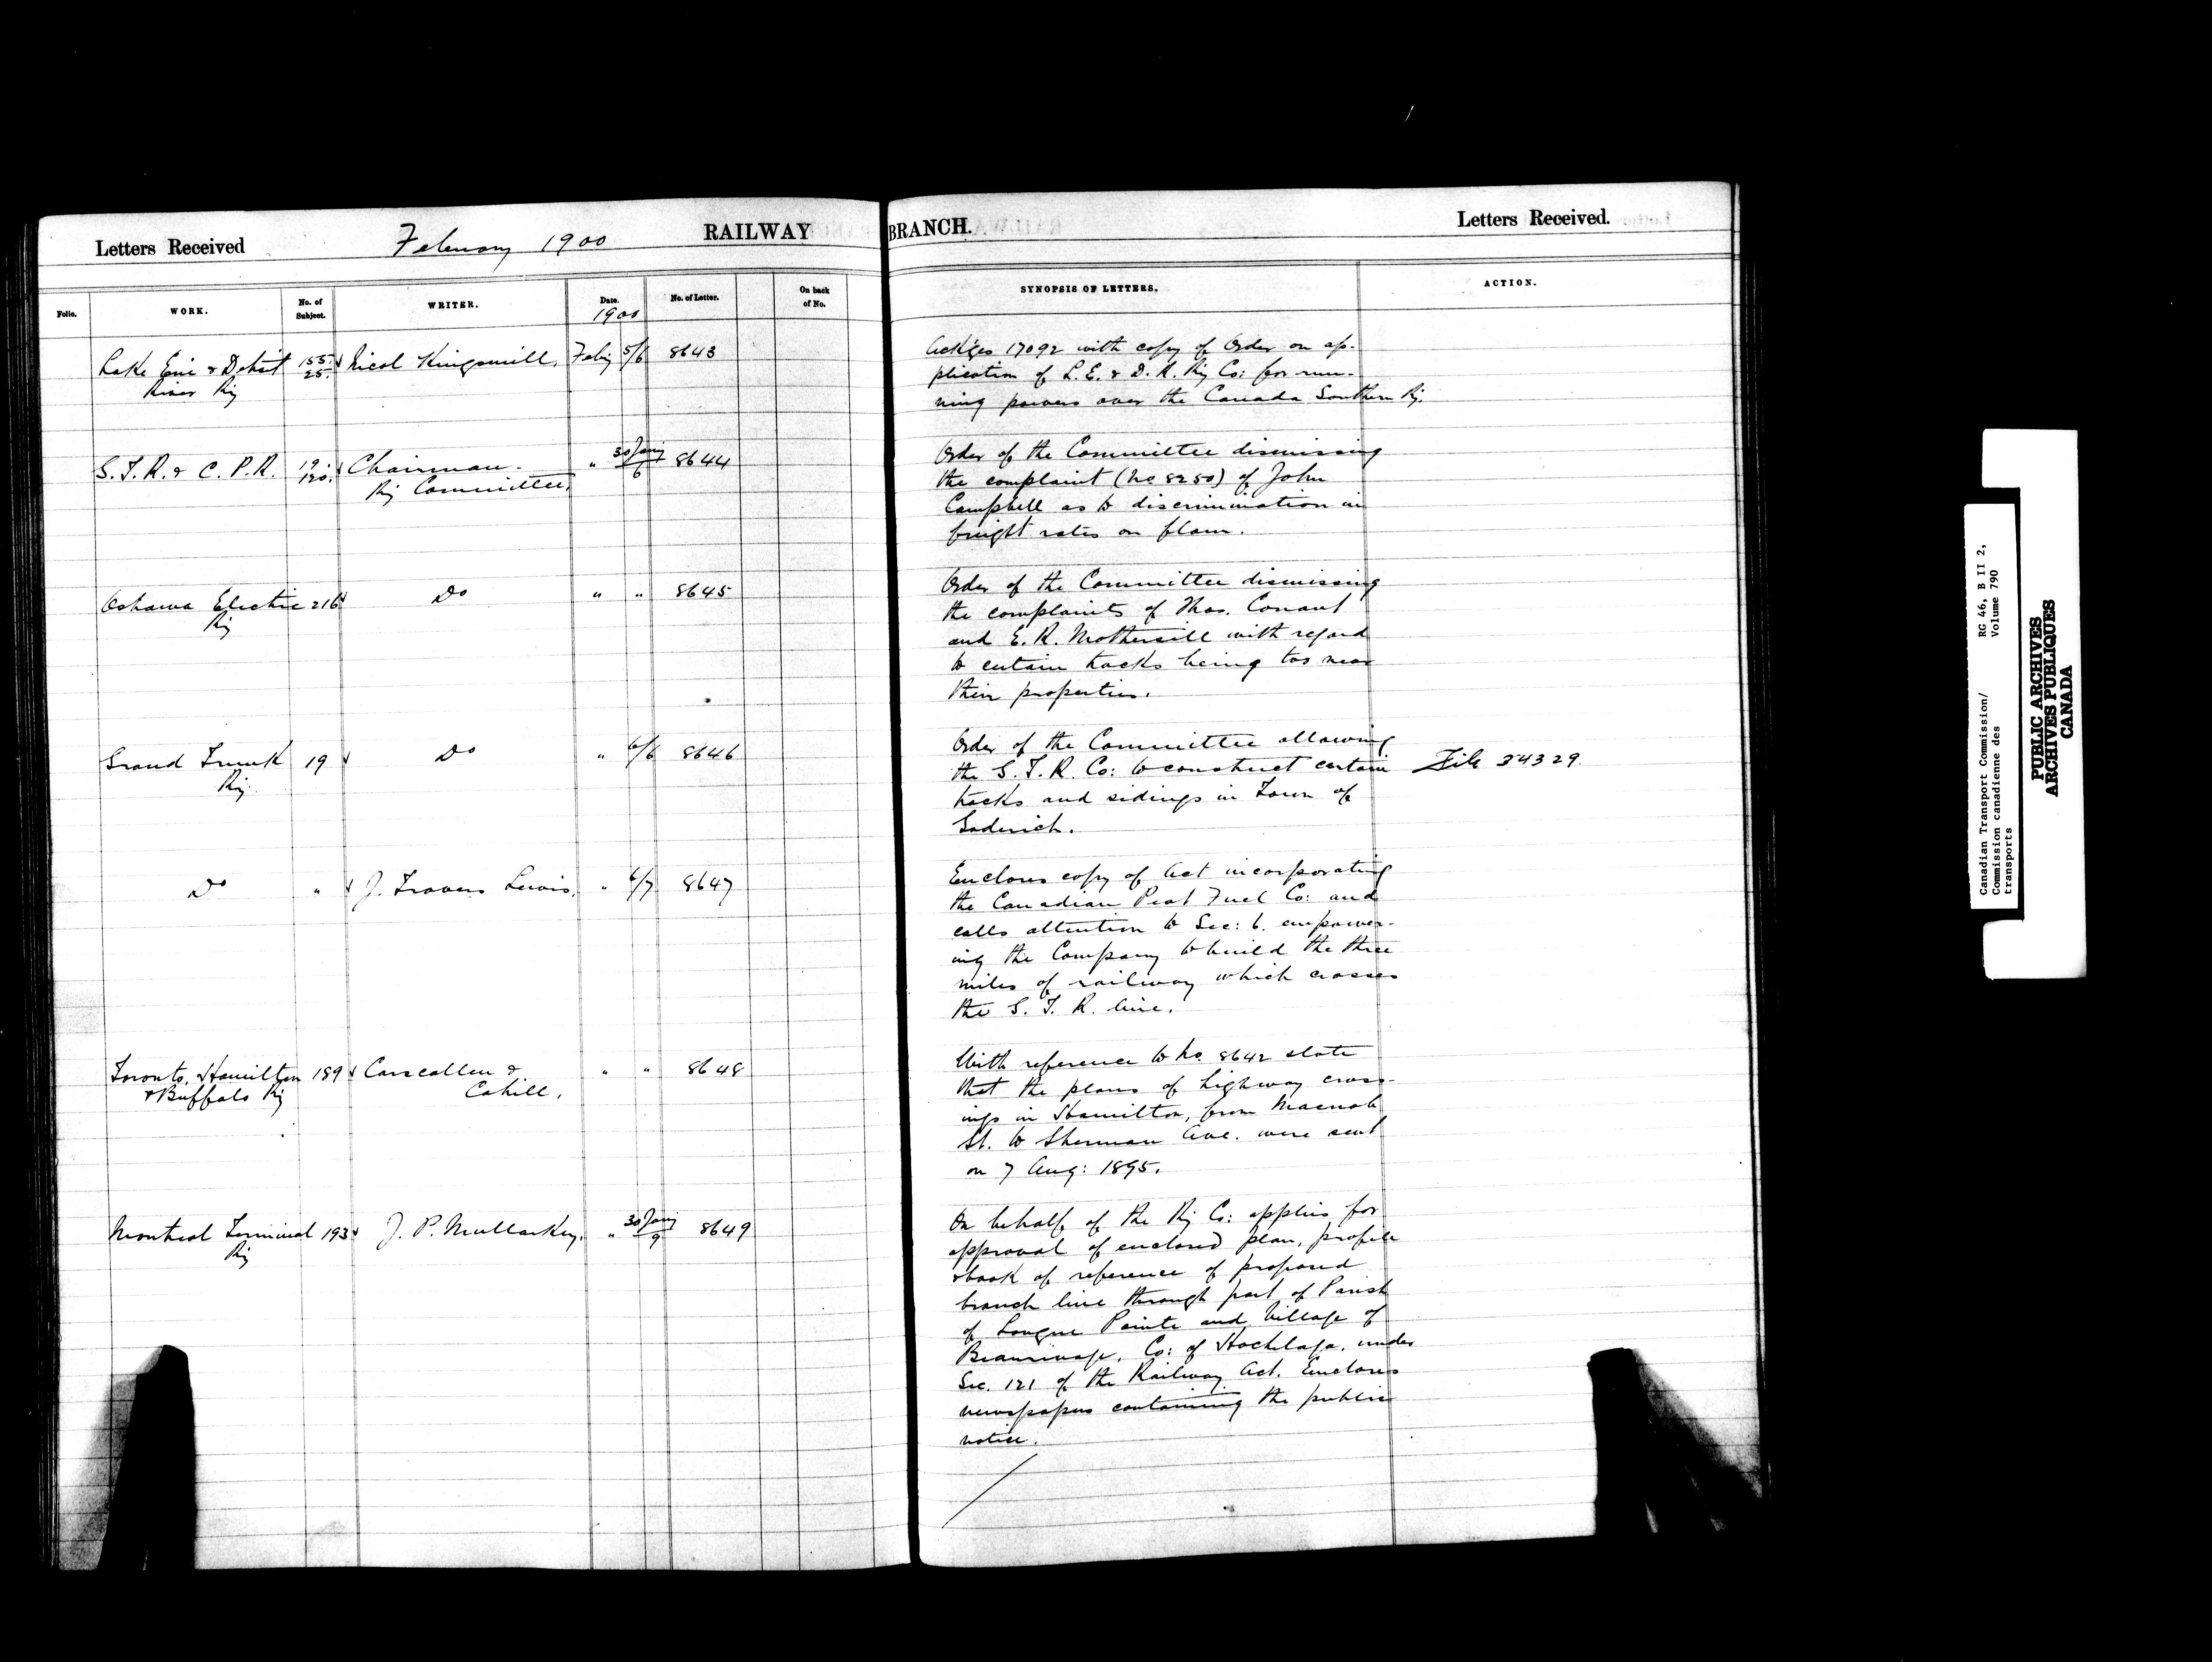 Letters Received
February 1900
RAILWAY
BRANCH.
Letters Received.
Folio.
WORK.
No. of Subject.
WRITER.
Date.
1900
No. of Letter.
On back of No.
SYNOPSIS OF LETTERS.
ACTION.
Lake Erie & Detroit River Ry
155. 25.
Nicol Kingsmill.
Feby 5/6
8643
Ackges 17092 with copy of Order on ap-
plication of L. E. & D. R. Ry Co: for run-
ning powers over the Canada Southern Ry.
G. T. R. & C. P. R.
19. 120.
Chairman
Ry Committee.
" 30 Jany/6
8644
Order of the Committee dismissing
the complaint (No 8250) of John
Campbell as to discrimination in
freight rates on flour.
Oshawa Electric Ry
216
Do
" "
8645
Order of the Committee dismissing
the complaints of Thos. Conant
and E. R. Mothersill with regard
to certain tracks being too near
their properties.
Grand Trunk Ry.
19
Do
" 6/6
8646
Order of the Committee allowing
the G. T. R. Co: to construct certain
tracks and sidings in Town of
Goderich.
File 34329.
Do
"
J. Travers Lewis.
" 6/7
8647
Encloses copy of Act incorporating
the Canadian Peat Fuel Co: and
calls attention to Sec: 6. empower-
ing the Company to build the three
miles of railway which crosses
the G. T. R. line.
Toronto, Hamilton & Buffalo Ry
189
Carscallen &
Cahill.
" "
8648
With reference to No. 8642 state
that the plans of highway cross-
ings in Hamilton, from Macnab
St. to Sherman Ave. were sent
on 7 Aug: 1895.
Montreal Terminal Ry
193
J. P. Mullarkey.
" 30 Jany/9
8649
On behalf of the Ry Co: applies for
approval of enclosed plan, profile
& book of reference of proposed
branch line through part of Parish
of Longue Pointe and Village of
Beaurivage, Co: of Hochelaga, under
Sec. 121 of the Railway Act. Encloses
newspapers containing the public
notice.
Canadian Transport Commission/
Commission canadienne des
transports
RG 46, B II 2,
Volume 790
PUBLIC ARCHIVES
ARCHIVES PUBLIQUES
CANADA